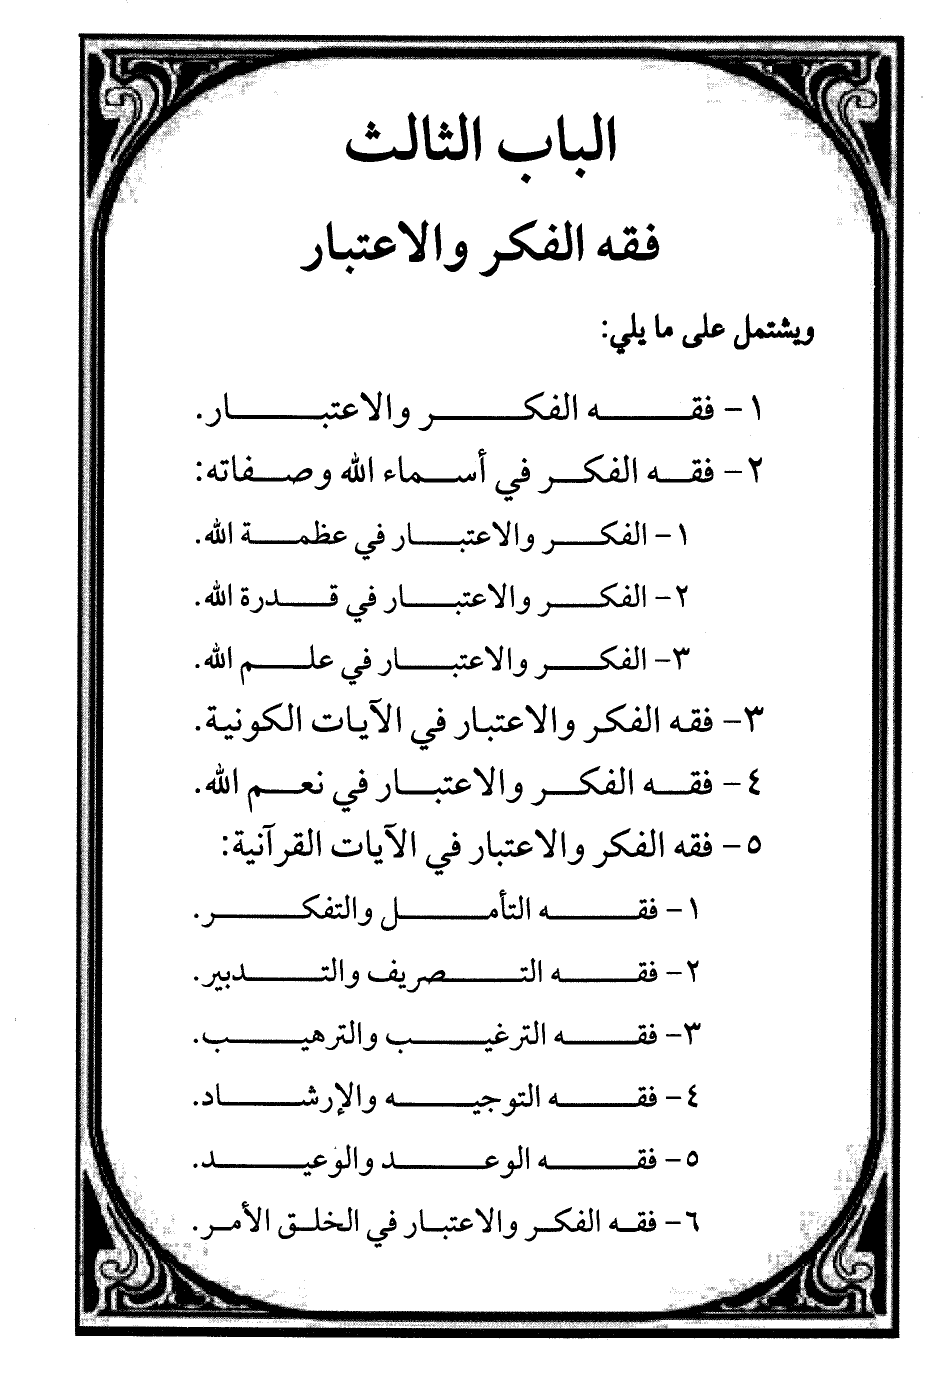 الباب الثالث
فقه الفكر والاعتبار
ويشتمل على ما يلي:
١- فقه الفكر والاعتبار.
٢- فقه الفكر في أسماء الله وصفاته:
١- الفكر والاعتبار في عظمة الله.
٢- الفكر والاعتبار في قدرة الله.
٣- الفكر والاعتبار في علم الله.
٣- فقه الفكر والاعتبار في الآيات الكونية.
٤- فقه الفكر والاعتبار في نعم الله.
٥- فقه الفكر والاعتبار في الآيات القرآنية:
١- فقه التأمل والتفكر.
٢- فقه التصريف والتدبير.
٣- فقه الترغيب والترهيب.
٤- فقه التوجيه والإرشاد.
٥- فقه الوعد والوعيد.
٦- فقه الفكر والاعتبار في الخلق الأمر.